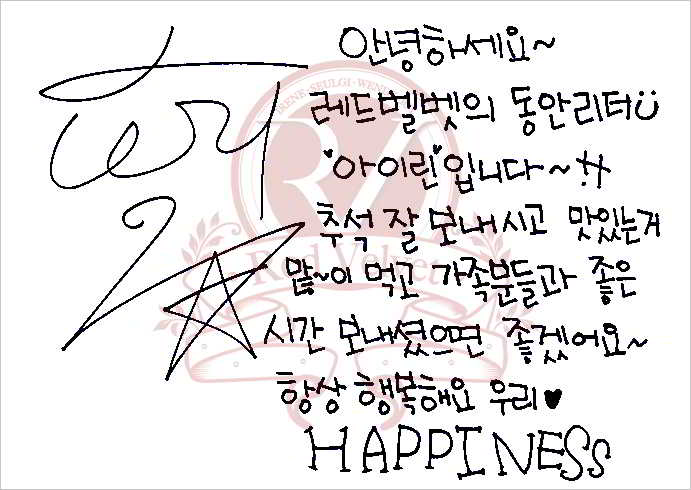 안녕하세요~
레드벨벳의 동안리더
"아이린"입니다~!!
추석 잘 보내시고 맛있는거
많~이 먹고 가족분들과 좋은
시간 보내셨으면 좋겠어요~
항상 행복해요 우리♥
HAPPINESS
IRENE·SEULGI·WEN
RV
Red Velvet